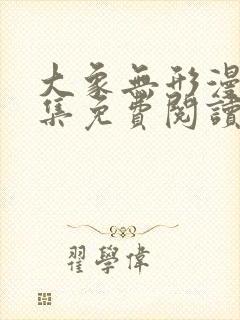 大象無形漫
集免費閱讀
翟學偉